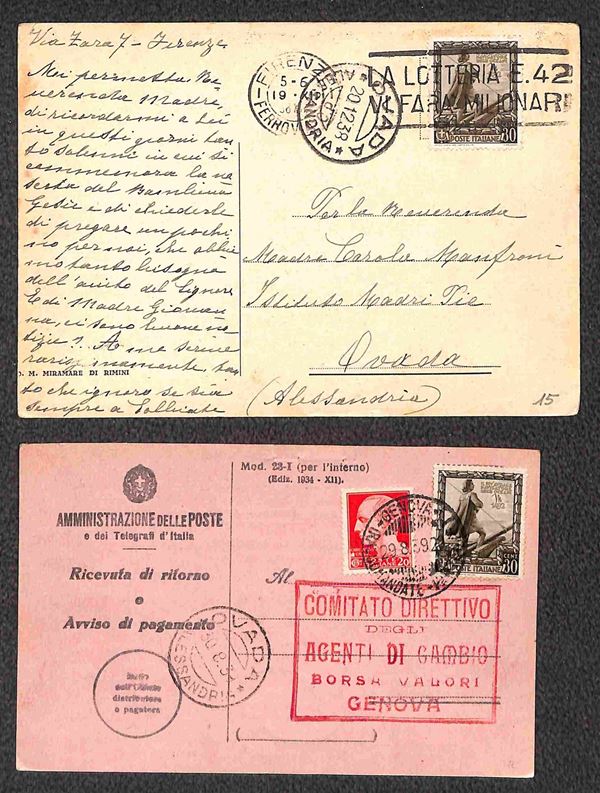 Via Zara 7 - Firenze
Mi permetta Re-
verenda Madre,
di ricordarmi a Lei
in questi giorni tan
to solenni in cui si
commemora la na
scita del Bambino
Gesù e di chiederle
di pregare un pochi
no per noi, che abbia
mo tanto bisogno
dell'aiuto del Signore
E di Madre Giovan
na, vi sono buone no
tizie? A me scrive
rarissimamente, tan
to che ignoro se sia
sempre a
O. M. MIRAMARE DI RIMINI
FIRENZE
FERROV
OVADA
20.12.38
ALESSANDRIA
LA LOTTERIA E.42
VI FARA' MILIONARI
POSTE ITALIANE
30
Per la Reverenda
Madre Carola Manfroni
Istituto Madri Pie
Ovada
(Alessandria)
15
AMMINISTRAZIONE DELLE POSTE
e dei Telegrafi d'Italia
Ricevuta di ritorno
e
Avviso di pagamento
Bollo
dell'Ufficio
distributore
o pagatore
OVADA
ALESSANDRIA
Mod. 23-I (per l'interno)
(Ediz. 1934 - XII).
Al
GENOVA
29.8.39
1492
CENT
30
POSTE ITALIANE
COMITATO DIRETTIVO
DEGLI
AGENTI DI CAMBIO
BORSA VALORI
GENOVA